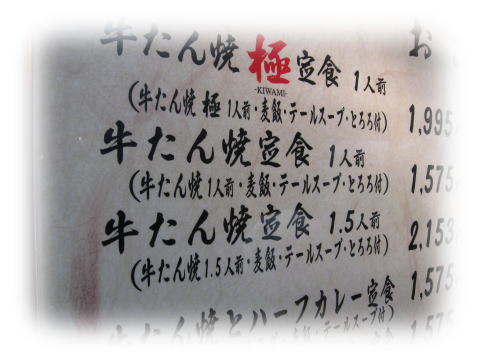 牛たん焼 極 定食 1人前 1,995
-KIWAMI-
(牛たん焼 極 1人前・麦飯・テールスープ・とろろ付)
牛たん焼定食 1人前 1,575
(牛たん焼 1人前・麦飯・テールスープ・とろろ付)
牛たん焼定食 1.5人前 2,153
(牛たん焼 1.5人前・麦飯・テールスープ・とろろ付)
牛たん焼とハーフカレー定食 1,575
テールスープ付)